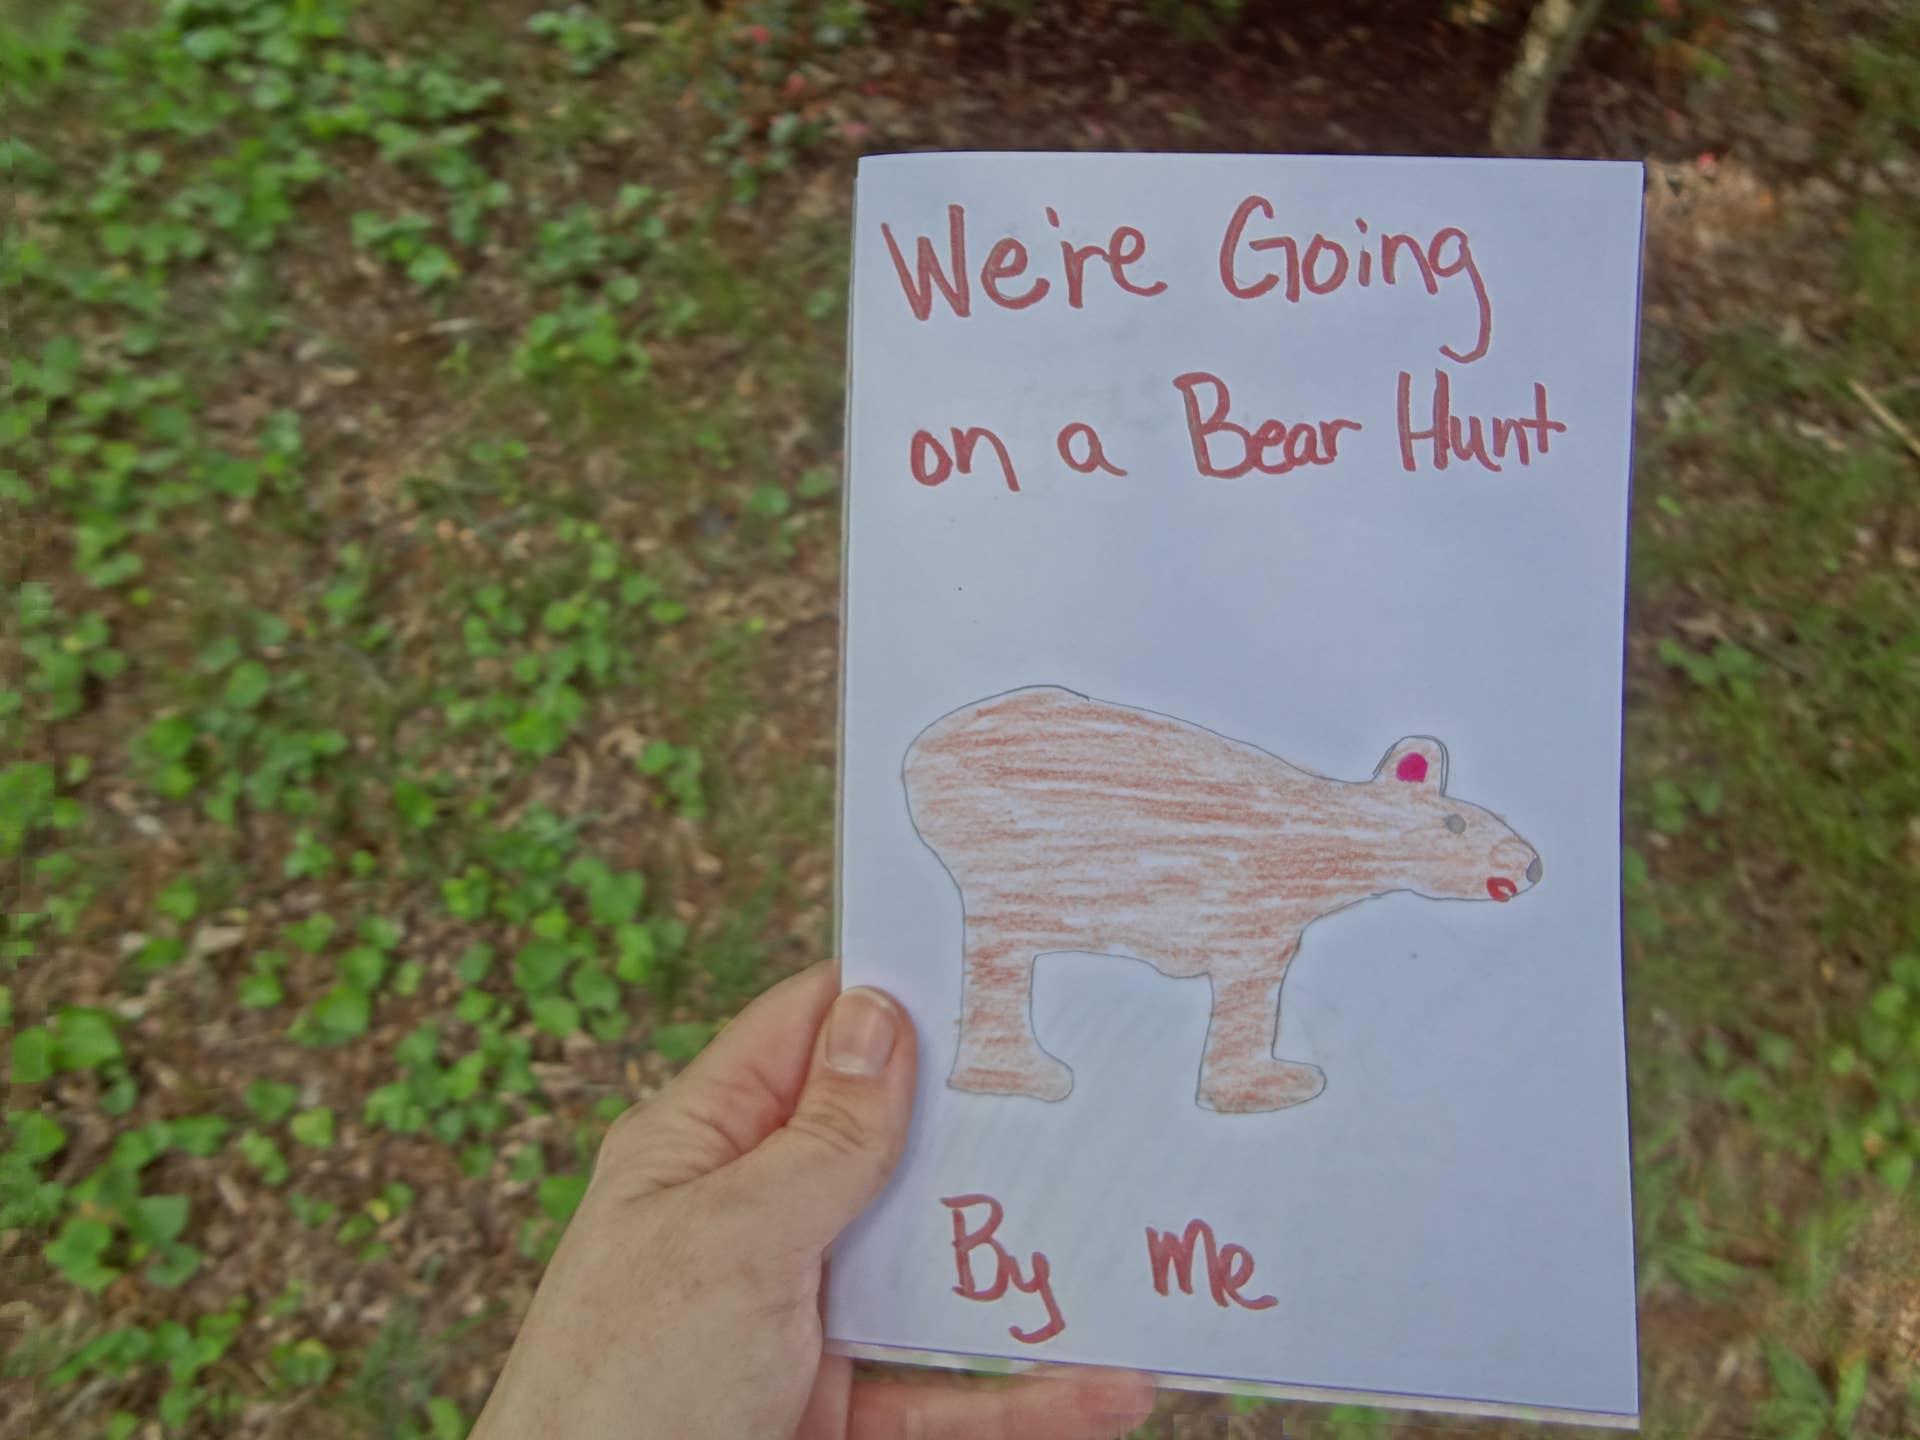 We're Going
on a Bear Hunt
By me